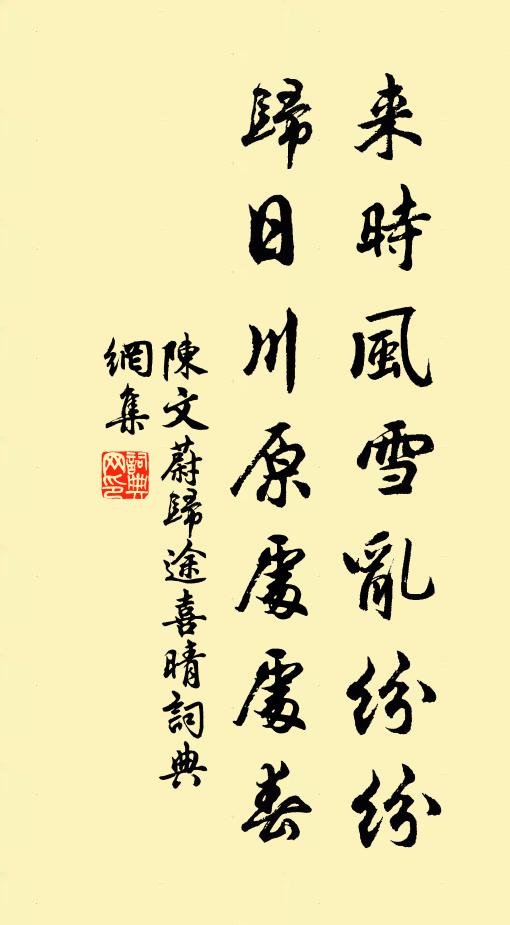 来時風雪亂紛紛
歸日川原處處春
陳文蔚歸途喜晴詞典
網集
詞典
网印